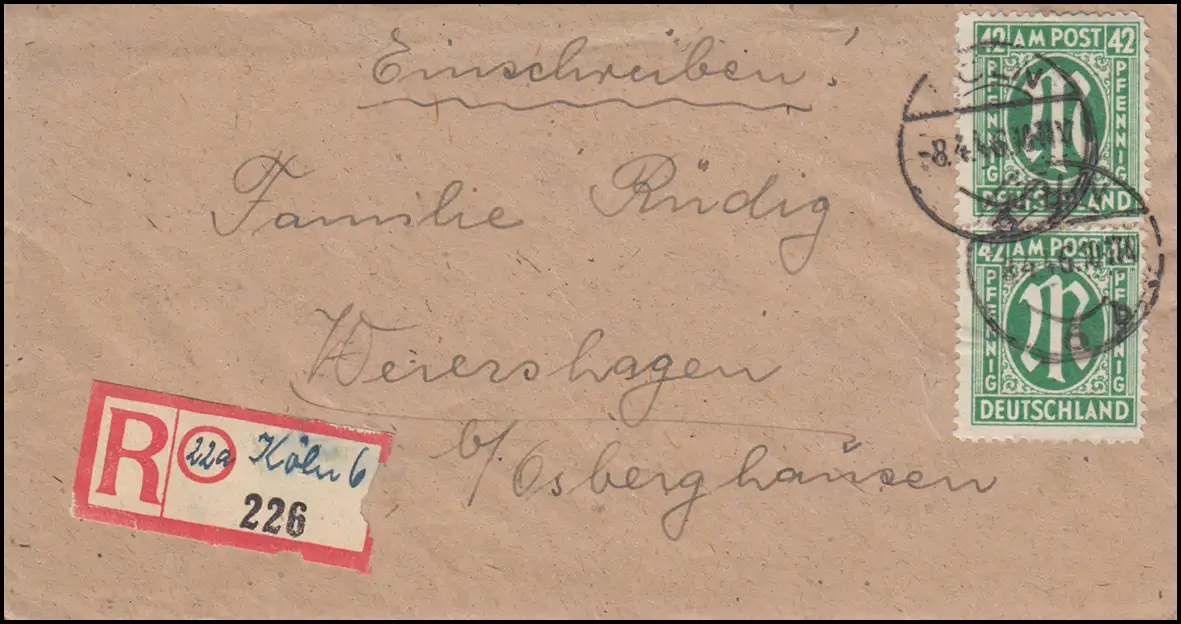 Einschreiben.
Familie Rüdig
Weiershagen
b/Osberghausen
R 22a Köln 6
226
42 AM POST 42
PFENNIG PFENNIG
DEUTSCHLAND
KÖLN
-8.4.46.10-11V
42 AM POST
PFENNIG PFENNIG
DEUTSCHLAND